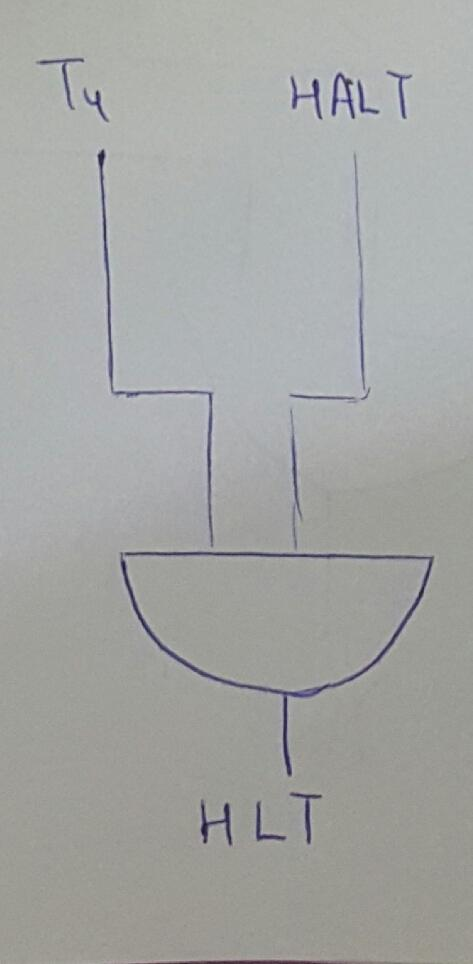 T4 HALT
HLT